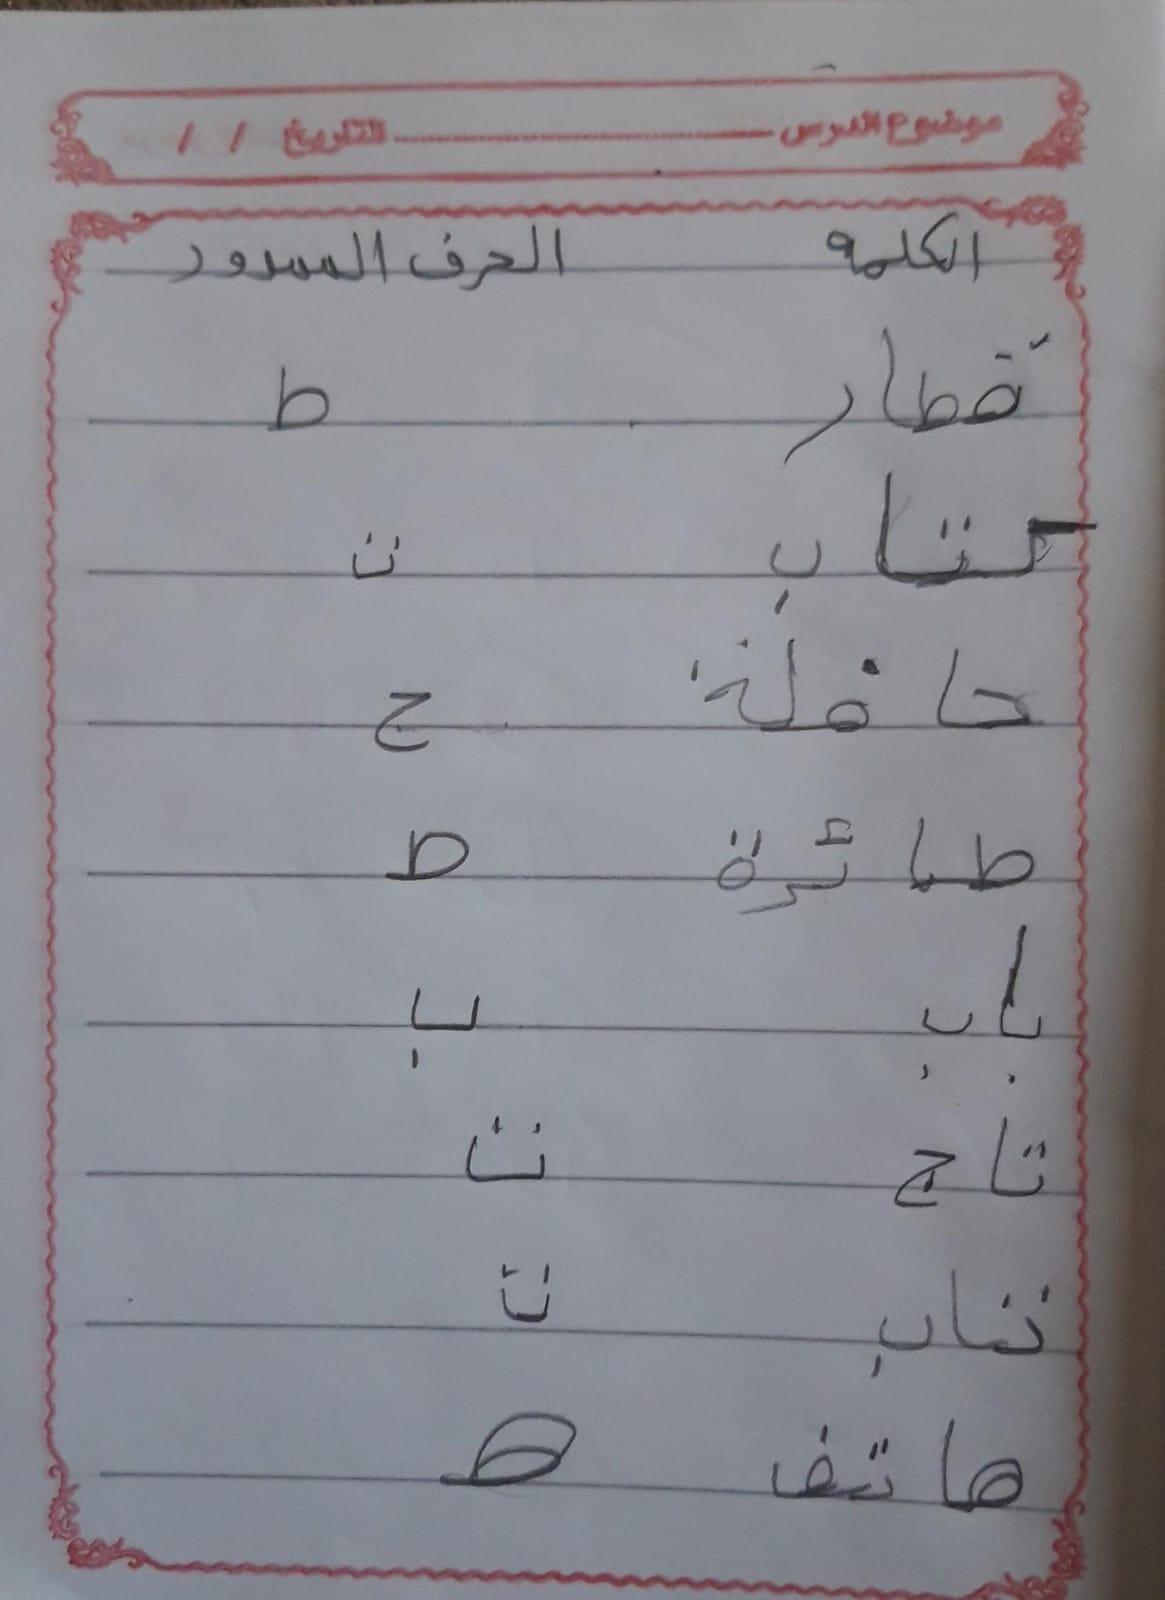 موضوع الدرس ــــــــــــــــ التاريخ / /
الكلمة الحرف الممدود
قطار ط
كتاب ت
حافلة ح
طائرة ط
باب ب
تاج ت
تناب ت
هاتف ه